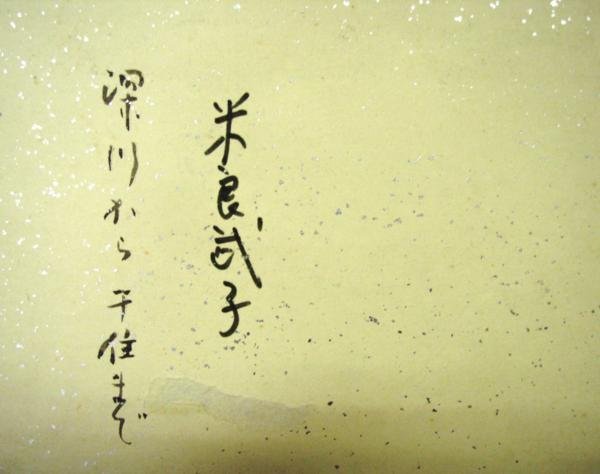 米良武子
深川から千住まで